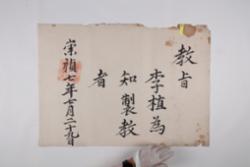 教旨
李植為
知製教
者
崇禎七年七月二十九日